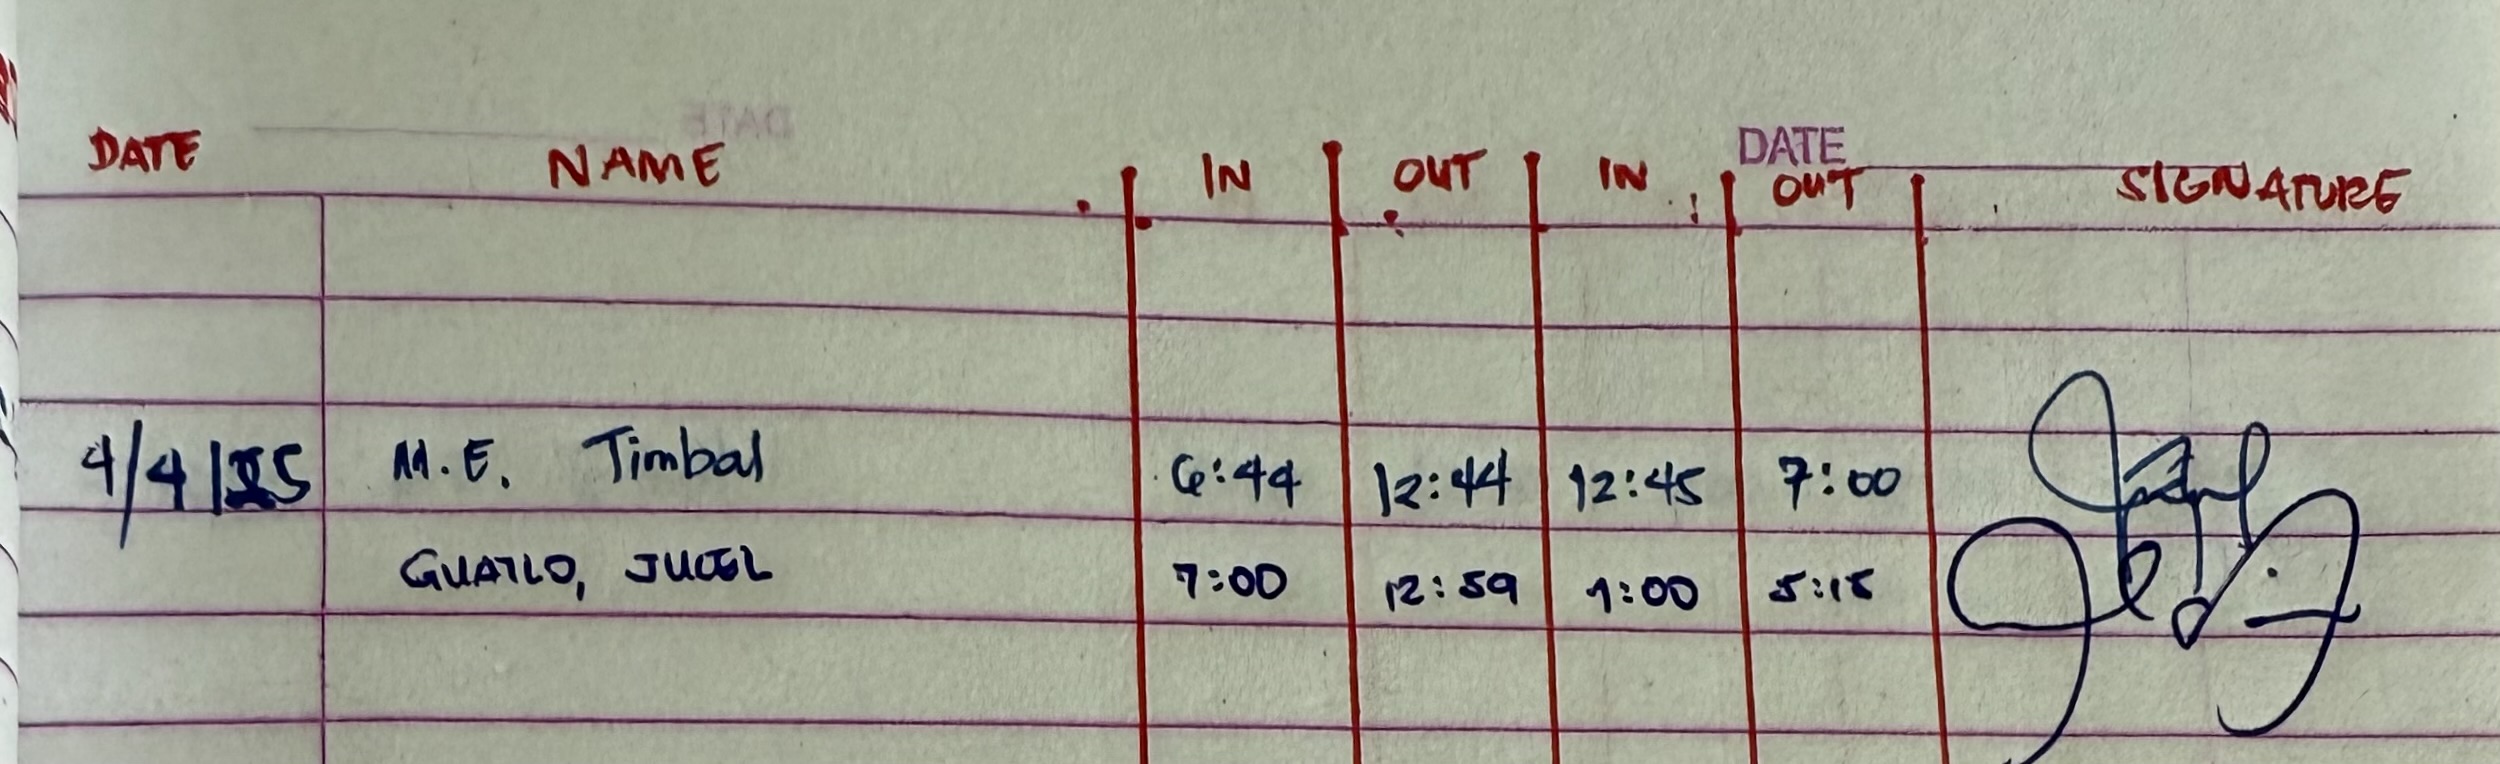 DATE
DATE NAME IN OUT IN OUT SIGNATURE
4/4/25 M.E. Timbal 6:44 12:44 12:45 7:00
GUATLO, 7:00 12:59 1:00 5:15